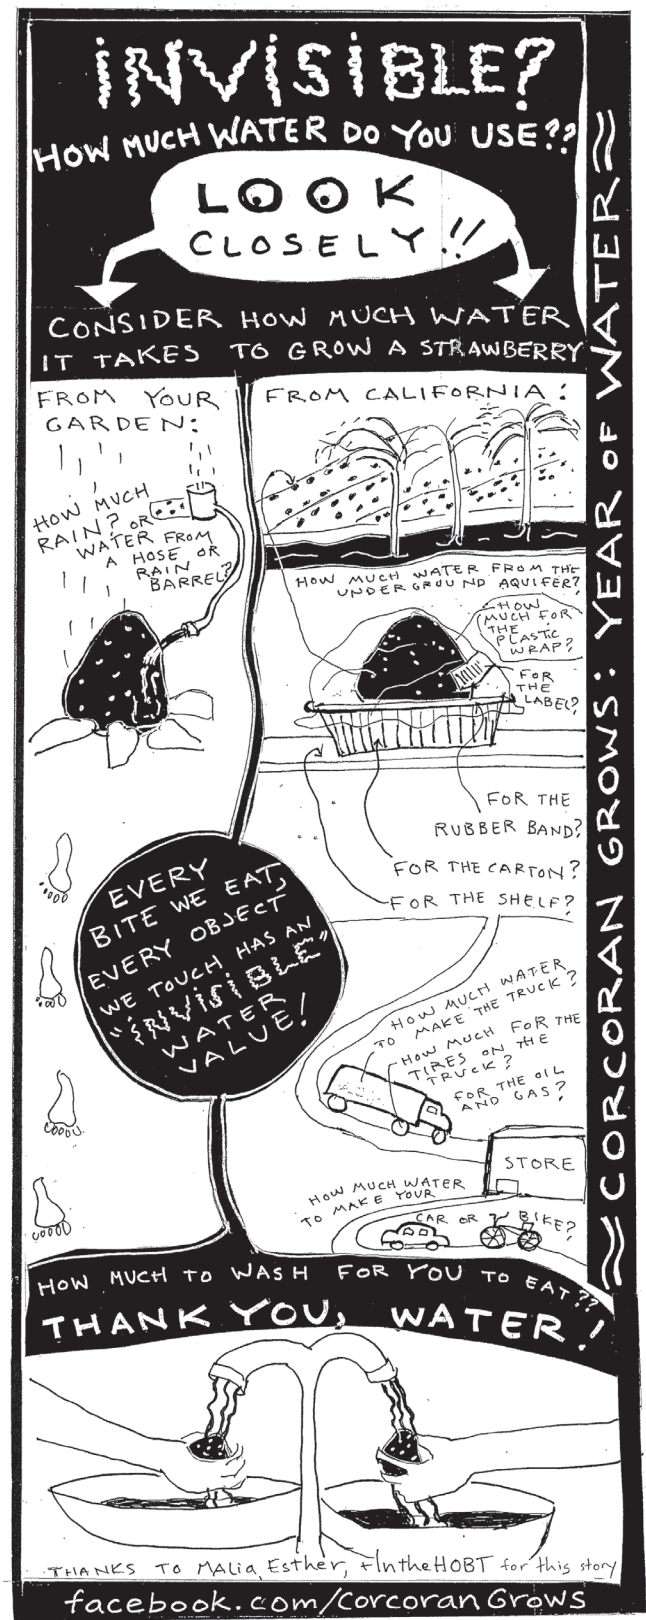 INVISIBLE?
HOW MUCH WATER DO YOU USE??
LOOK
CLOSELY!!
CONSIDER HOW MUCH WATER
IT TAKES TO GROW A STRAWBERRY
FROM YOUR
GARDEN:
HOW MUCH
RAIN? OR
WATER FROM
A HOSE OR
RAIN
BARREL?
FROM CALIFORNIA:
HOW MUCH WATER FROM THE
UNDERGROUND AQUIFER?
HOW
MUCH FOR
THE
PLASTIC
WRAP?
FOR
THE
LABEL?
FOR THE
RUBBER BAND?
FOR THE CARTON?
FOR THE SHELF?
EVERY
BITE WE EAT,
EVERY OBJECT
WE TOUCH HAS AN
"INVISIBLE"
WATER
VALUE!
HOW MUCH WATER
TO MAKE THE TRUCK?
HOW MUCH FOR THE
TIRES ON THE
TRUCK?
FOR THE OIL
AND GAS?
STORE
HOW MUCH WATER
TO MAKE YOUR
CAR OR BIKE?
HOW MUCH TO WASH FOR YOU TO EAT??
THANK YOU, WATER!
THANKS TO MALia, Esther, + IntheHOBT for this story
facebook.com/Corcoran Grows
≈CORCORAN GROWS: YEAR OF WATER≈